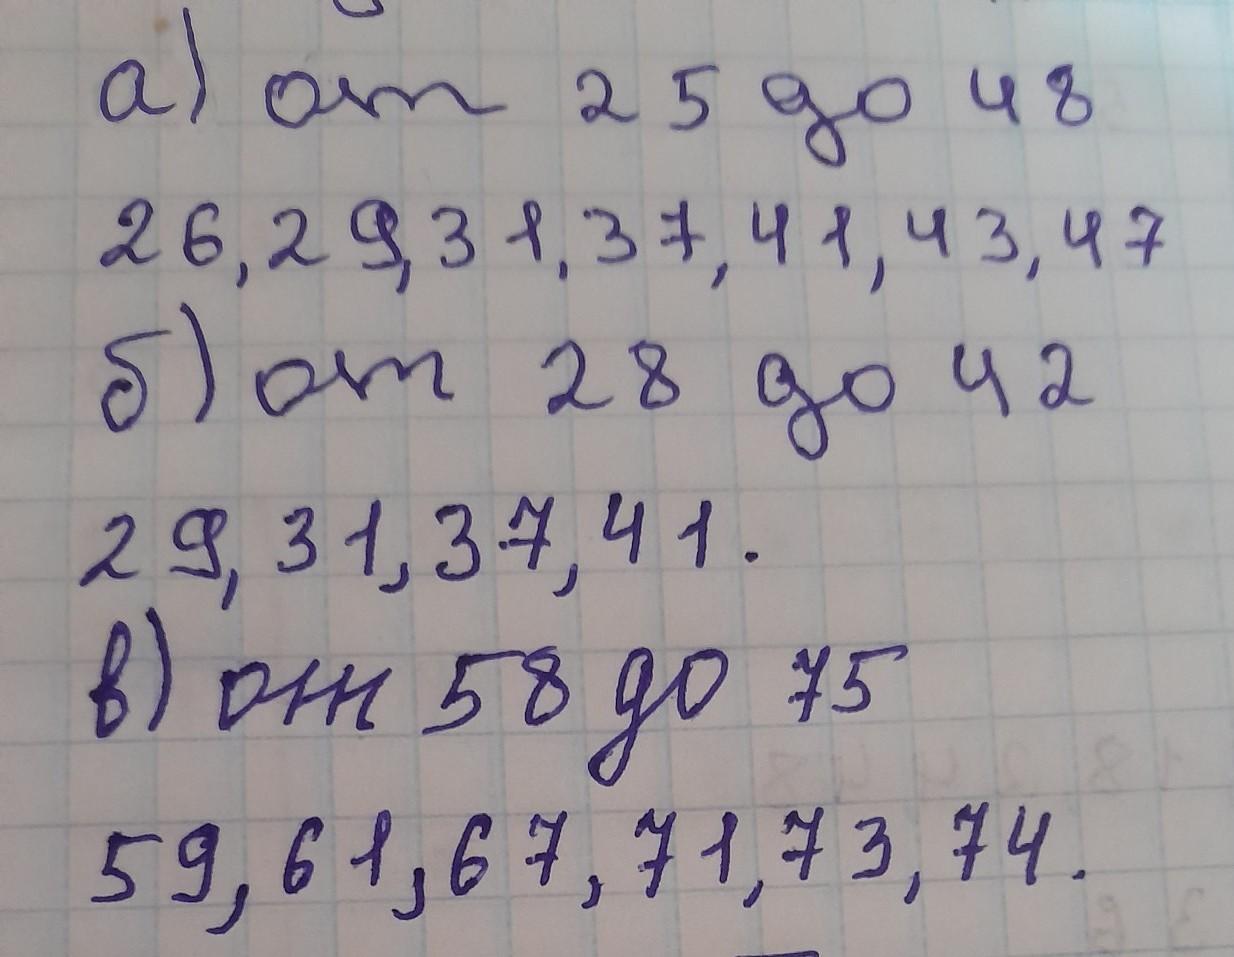 а) от 25 до 48
26, 29, 31, 37, 41, 43, 47
б) от 28 до 42
29, 31, 37, 41.
в) от 58 до 75
59, 61, 67, 71, 73, 74.